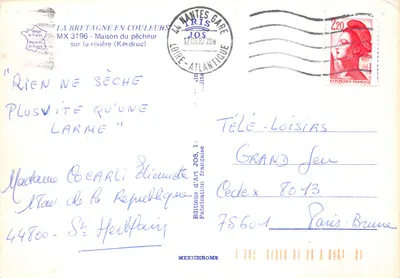 LA BRETAGNE EN COULEURS
MX 3196 - Maison du pêcheur
sur la rivière (Kerdruc)
IRIS
JOS
44 NANTES GARE
LOIRE-ATLANTIQUE
2,20
"RIEN NE SÈCHE
PLUS VITE QU'UNE
LARME"
Madame COCARLI Etiennette
1 Rav. de la République
44800 - St Herblain
Editions d'Art JOS
Fabrication française
TÉLÉ-LOISIRS
GRAND Jeu
Cedex 8013
75601 Paris-Brune
MEXICHROME